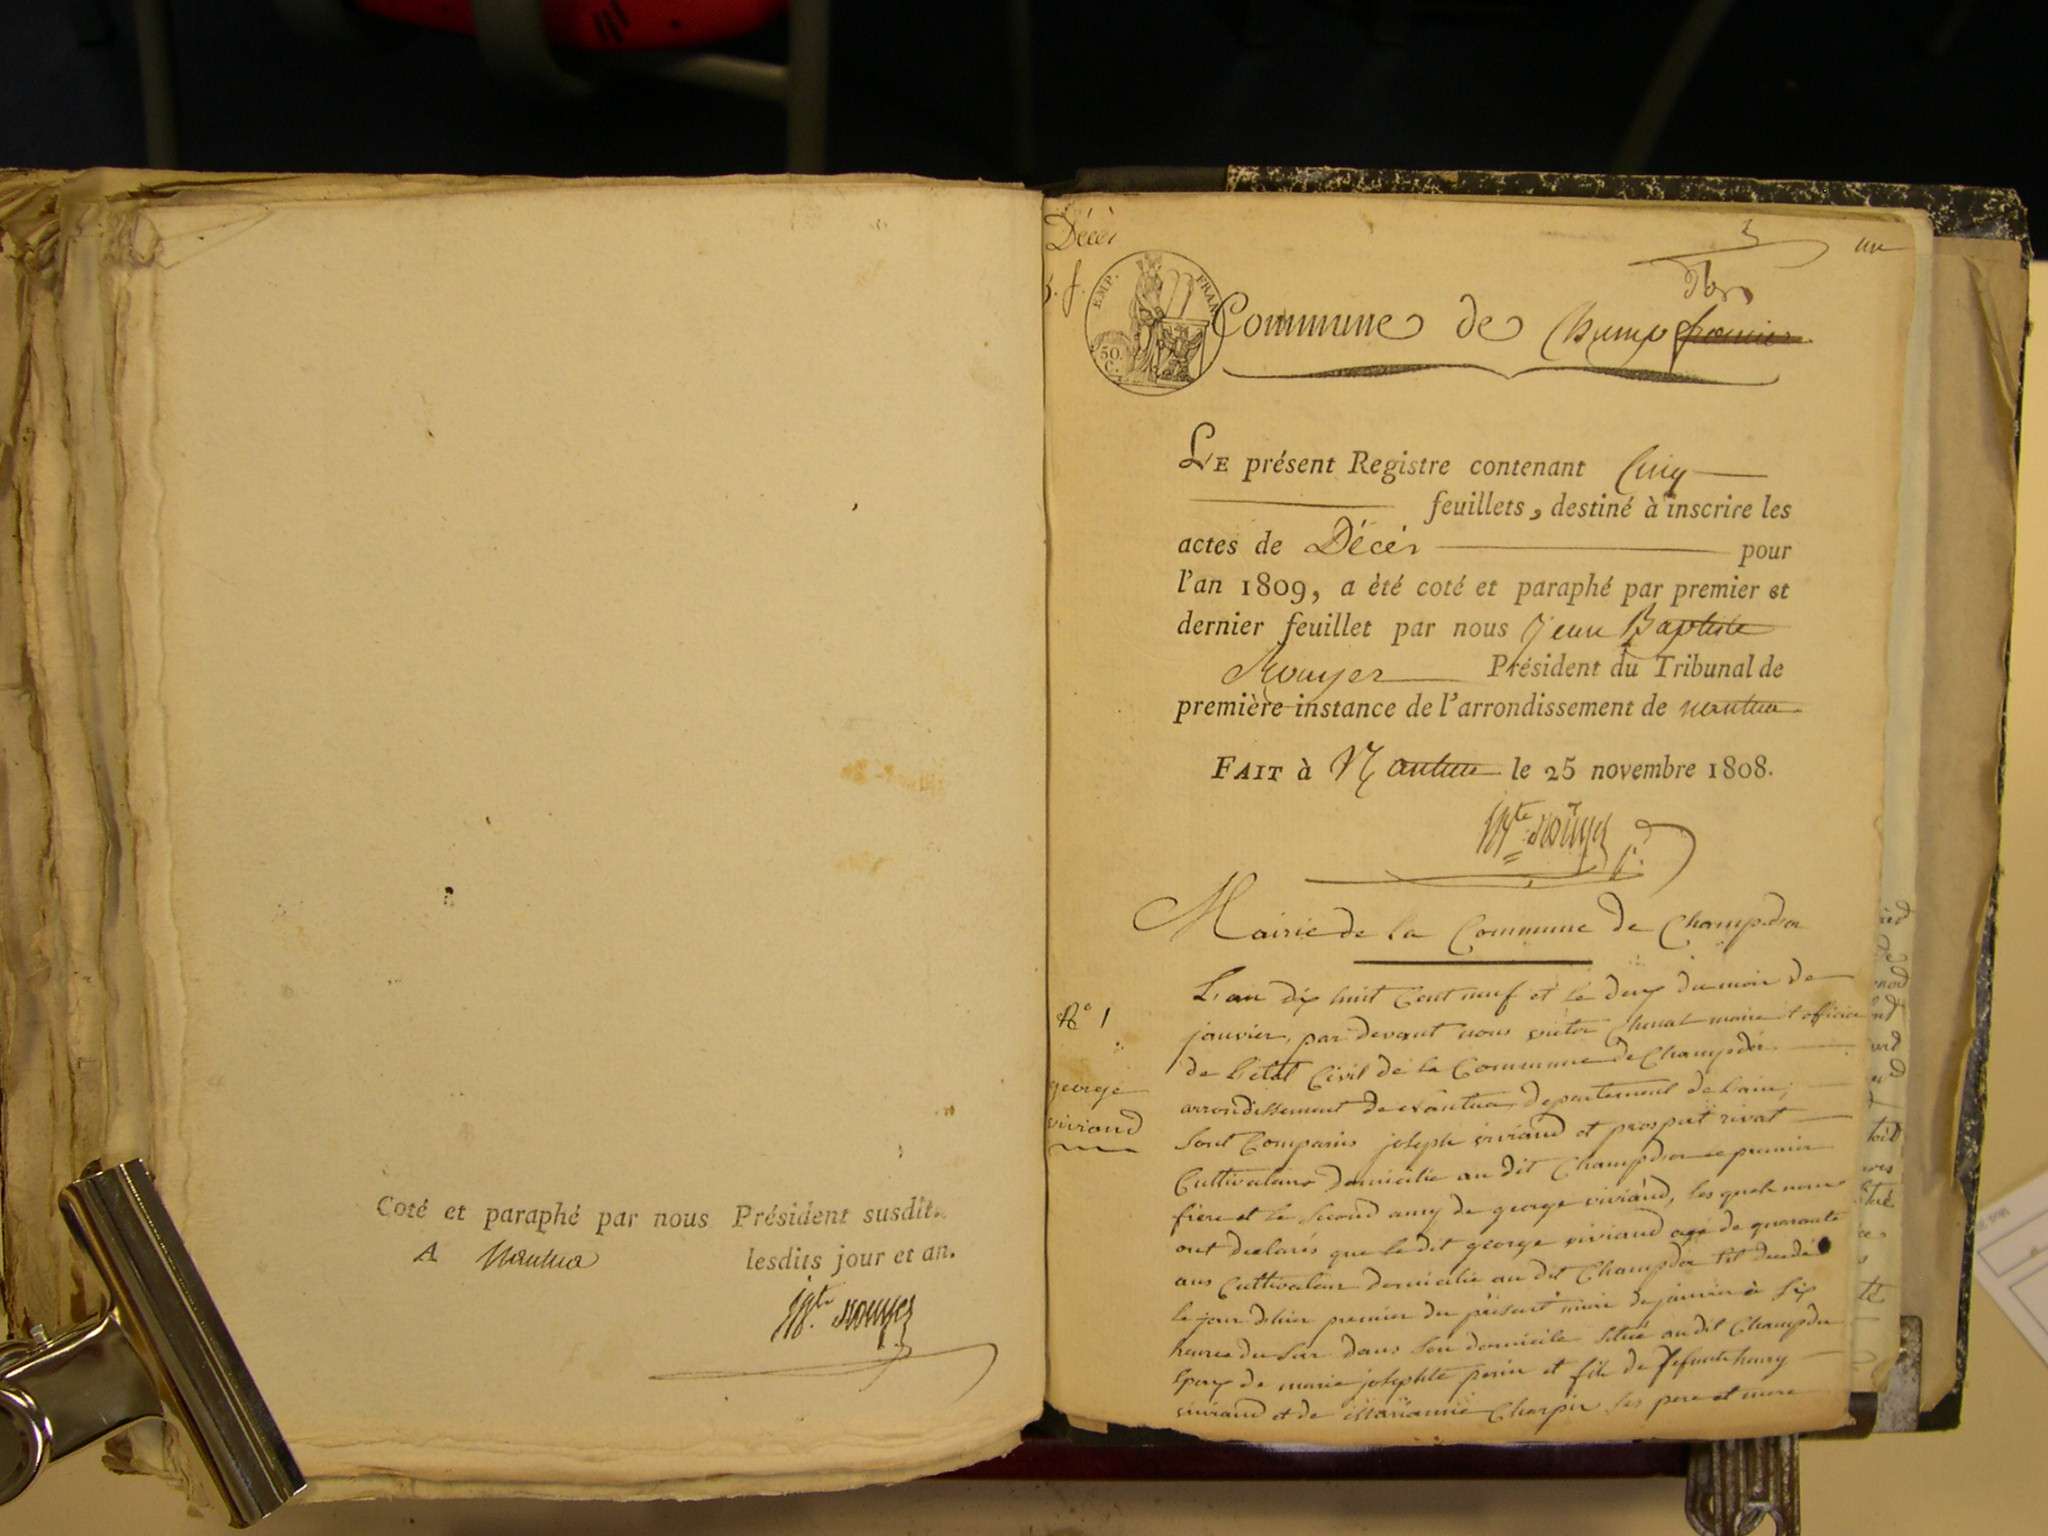 Coté et paraphé par nous Président susdit.
A Nantua lesdits jour et an.
Bte. rouyer
Décès
5. f.
EMP. FRAN
50. C.
5
un
d'or
Commune de Champ fromier
LE présent Registre contenant Cinq
feuillets, destiné à inscrire les
actes de Décès pour
l'an 1809, a èté coté et paraphé par premier et
dernier feuillet par nous Jean Baptiste
Rouyer Président du Tribunal de
première instance de l'arrondissement de nantua
FAIT à Nantua le 25 novembre 1808.
Bte rouyer
Mairie de la Commune de Champdor
N° 1
george
viviand
L'an dix huit Cent neuf et le deux du mois de
janvier, par devant nous victor Chenal maire et officier
de L'etat Civil de la Commune de Champdor
arrondissement de Nantua, departement de L'ain,
sont Comparus joseph viviand et prospert rivat
Cultivateurs domicilie au dit Champdor le premier
frere et le second amy de george viviand, les quels nous
ont declarés que le dit george viviand agé de quarante
ans Cultivateur domicilie au dit Champdor est decedé
le jour d'hier premier du présent mois de janvier à six
heures du soir dans son domicile situé au dit Champdor
Epoux de marie josephte perin et fils de defunt henry
viviand et de Marianne Charpin ses pere et mere